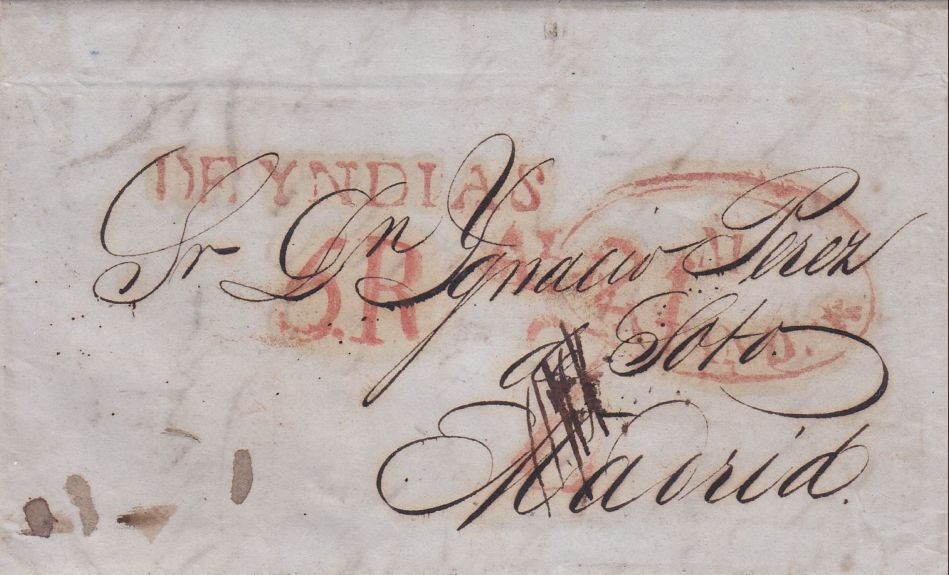 DE YNDIAS
Sr Dn Ygnacio Perez
5R
de Soto.
Madrid.